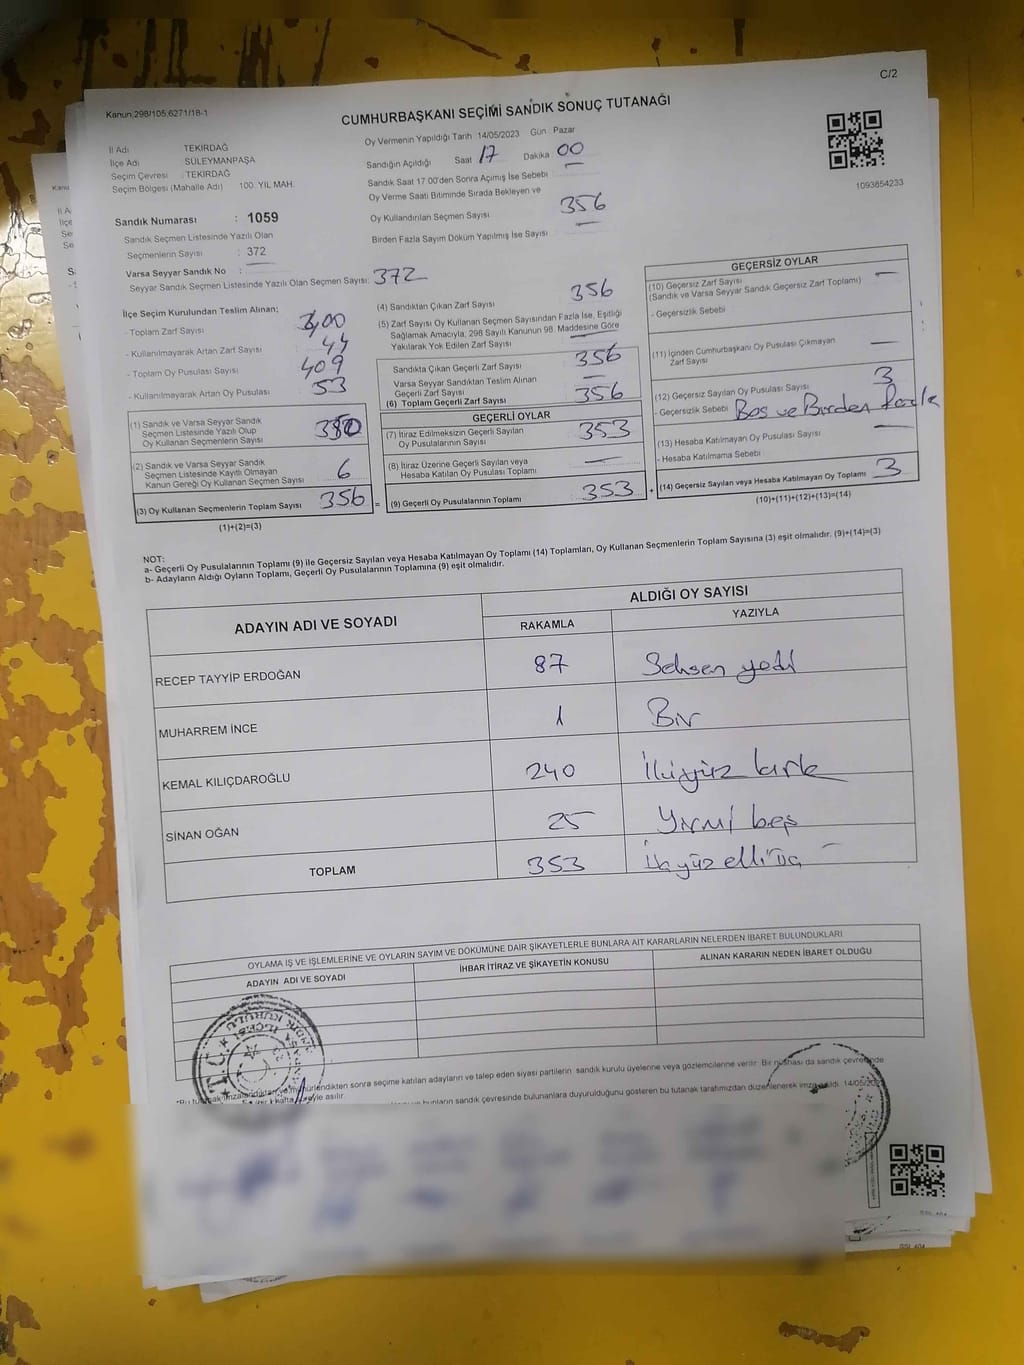 C/2
Kanun:298/105:6271/18-1
CUMHURBAŞKANI SEÇİMİ SANDIK SONUÇ TUTANAĞI
İl Adı TEKİRDAĞ
İlçe Adı SÜLEYMANPAŞA
Seçim Çevresi : TEKİRDAĞ
Seçim Bölgesi (Mahalle Adı) 100. YIL MAH.
Sandık Numarası : 1059
Sandık Seçmen Listesinde Yazılı Olan
Seçmenlerin Sayısı : 372
Varsa Seyyar Sandık No :
Seyyar Sandık Seçmen Listesinde Yazılı Olan Seçmen Sayısı: 372
Oy Vermenin Yapıldığı Tarih 14/05/2023 Gün Pazar
Sandığın Açıldığı Saat 17 Dakika 00
Sandık Saat 17.00'den Sonra Açılmış İse Sebebi —
Oy Verme Saati Bitiminde Sırada Bekleyen ve
Oy Kullandırılan Seçmen Sayısı 356
Birden Fazla Sayım Döküm Yapılmış İse Sayısı —
1093854233
İlçe Seçim Kurulundan Teslim Alınan;
- Toplam Zarf Sayısı 400
- Kullanılmayarak Artan Zarf Sayısı 44
- Toplam Oy Pusulası Sayısı 409
- Kullanılmayarak Artan Oy Pusulası 53
(1) Sandık ve Varsa Seyyar Sandık
Seçmen Listesinde Yazılı Olup
Oy Kullanan Seçmenlerin Sayısı 350
(2) Sandık ve Varsa Seyyar Sandık
Seçmen Listesinde Kayıtlı Olmayan
Kanun Gereği Oy Kullanan Seçmen Sayısı 6
(3) Oy Kullanan Seçmenlerin Toplam Sayısı 356 =
(1)+(2)=(3)
(4) Sandıktan Çıkan Zarf Sayısı 356
(5) Zarf Sayısı Oy Kullanan Seçmen Sayısından Fazla İse, Eşitliği
Sağlamak Amacıyla, 298 Sayılı Kanunun 98. Maddesine Göre
Yakılarak Yok Edilen Zarf Sayısı —
Sandıkta Çıkan Geçerli Zarf Sayısı 356
Varsa Seyyar Sandıktan Teslim Alınan
Geçerli Zarf Sayısı —
(6) Toplam Geçerli Zarf Sayısı 356
GEÇERLİ OYLAR
(7) İtiraz Edilmeksizin Geçerli Sayılan
Oy Pusulalarının Sayısı 353
(8) İtiraz Üzerine Geçerli Sayılan veya
Hesaba Katılan Oy Pusulası Toplamı —
(9) Geçerli Oy Pusulalarının Toplamı 353 +
GEÇERSİZ OYLAR
(10) Geçersiz Zarf Sayısı —
(Sandık ve Varsa Seyyar Sandık Geçersiz Zarf Toplamı)
- Geçersizlik Sebebi
(11) İçinden Cumhurbaşkanı Oy Pusulası Çıkmayan
Zarf Sayısı —
(12) Geçersiz Sayılan Oy Pusulası Sayısı 3
- Geçersizlik Sebebi Boş ve Birden fazla
(13) Hesaba Katılmayan Oy Pusulası Sayısı —
- Hesaba Katılmama Sebebi
(14) Geçersiz Sayılan veya Hesaba Katılmayan Oy Toplamı 3
(10)+(11)+(12)+(13)=(14)
NOT:
a- Geçerli Oy Pusulalarının Toplamı (9) ile Geçersiz Sayılan veya Hesaba Katılmayan Oy Toplamı (14) Toplamları, Oy Kullanan Seçmenlerin Toplam Sayısına (3) eşit olmalıdır. (9)+(14)=(3)
b- Adayların Aldığı Oyların Toplamı, Geçerli Oy Pusulalarının Toplamına (9) eşit olmalıdır.
ADAYIN ADI VE SOYADI ALDIĞI OY SAYISI
RAKAMLA YAZIYLA
RECEP TAYYİP ERDOĞAN 87 Seksen yedi
MUHARREM İNCE 1 Bir
KEMAL KILIÇDAROĞLU 240 İkiyüz kırk
SİNAN OĞAN 25 Yirmi beş
TOPLAM 353 üçyüz elli üç
OYLAMA İŞ VE İŞLEMLERİNE VE OYLARIN SAYIM VE DÖKÜMÜNE DAİR ŞİKAYETLERLE BUNLARA AİT KARARLARIN NELERDEN İBARET BULUNDUKLARI
ADAYIN ADI VE SOYADI İHBAR İTİRAZ VE ŞİKAYETİN KONUSU ALINAN KARARIN NEDEN İBARET OLDUĞU
sonra seçime katılan adayların ve talep eden siyasi partilerin sandık kurulu üyelerine veya gözlemcilerine verilir. Bir nüshası da sandık çevresinde
asılır.
bunların sandık çevresinde bulunanlara duyurulduğunu gösteren bu tutanak tarafımızdan düzenlenerek imza edildi. 14/05/2023